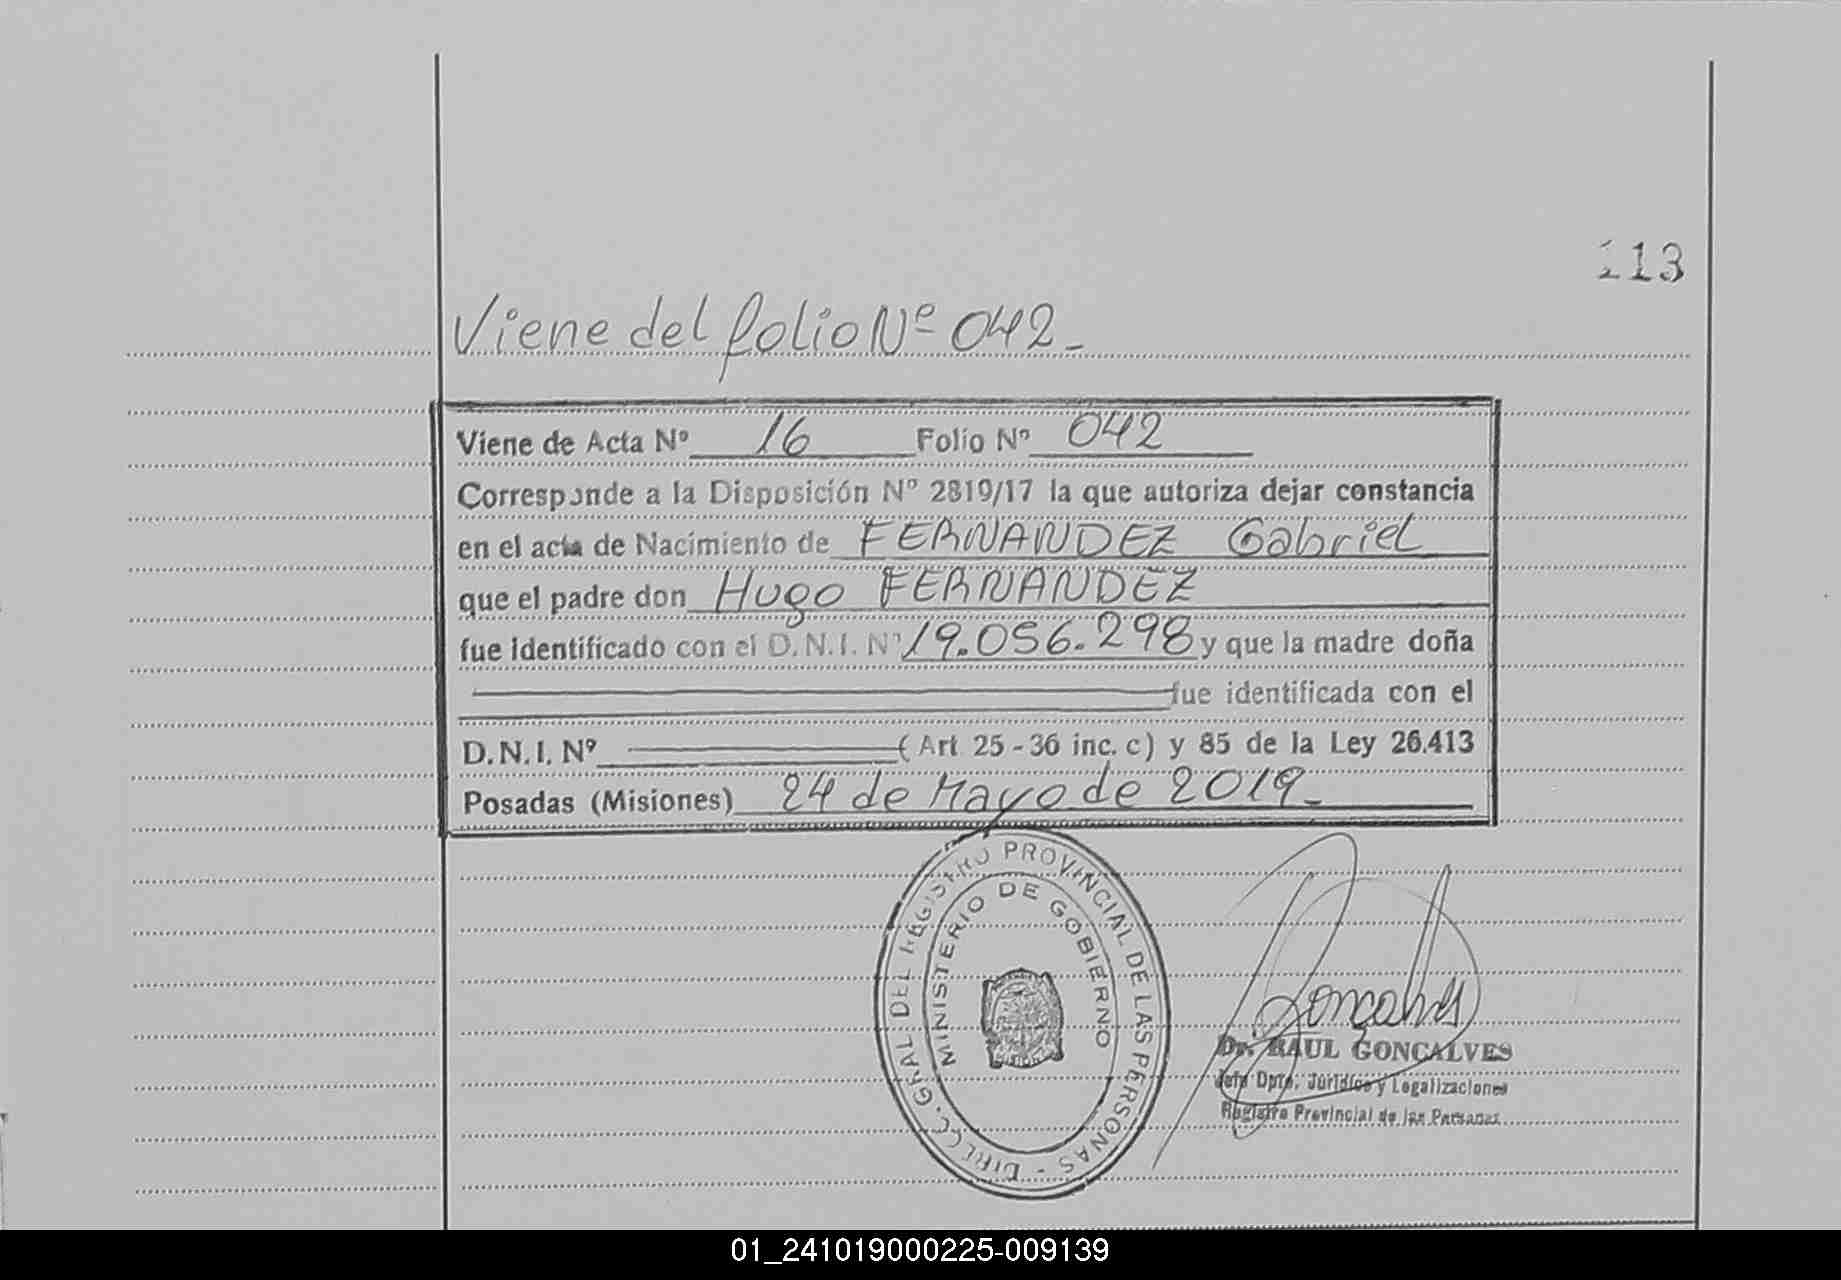 113
Viene del folio Nº 042_
Viene de Acta Nº 16 Folio Nº 042
Corresponde a la Disposición Nº 2819/17 la que autoriza dejar constancia
en el acta de Nacimiento de FERNANDEZ Gabriel
que el padre don Hugo FERNANDEZ
fue identificado con el D.N.I. Nº 19.056.298 y que la madre doña
fue identificada con el
D.N.I. Nº (Art 25-36 inc. c) y 85 de la Ley 26.413
Posadas (Misiones) 24 de Mayo de 2019_
DIRECC. GRAL. DEL REGISTRO PROVINCIAL DE LAS PERSONAS -
MINISTERIO DE GOBIERNO
Gonçalves
Dr. RAUL GONCALVES
Jefe Dpto. Jurídico y Legalizaciones
Registro Provincial de las Personas
01_241019000225-009139